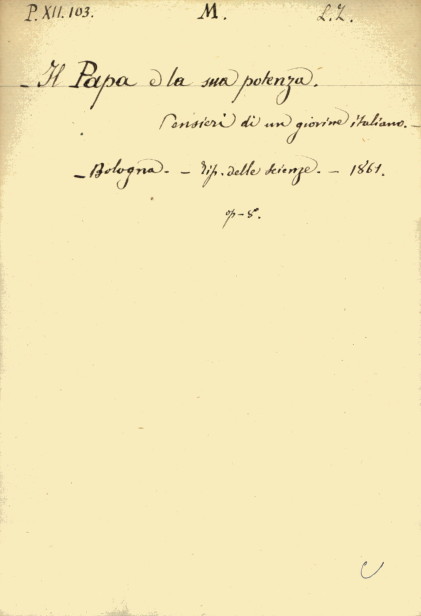 P. XII. 103. M. L. Z.
- Il Papa e la sua potenza.
Pensieri di un giovine italiano. -
- Bologna. - Tip. delle scienze. - 1861.
op - 8º.